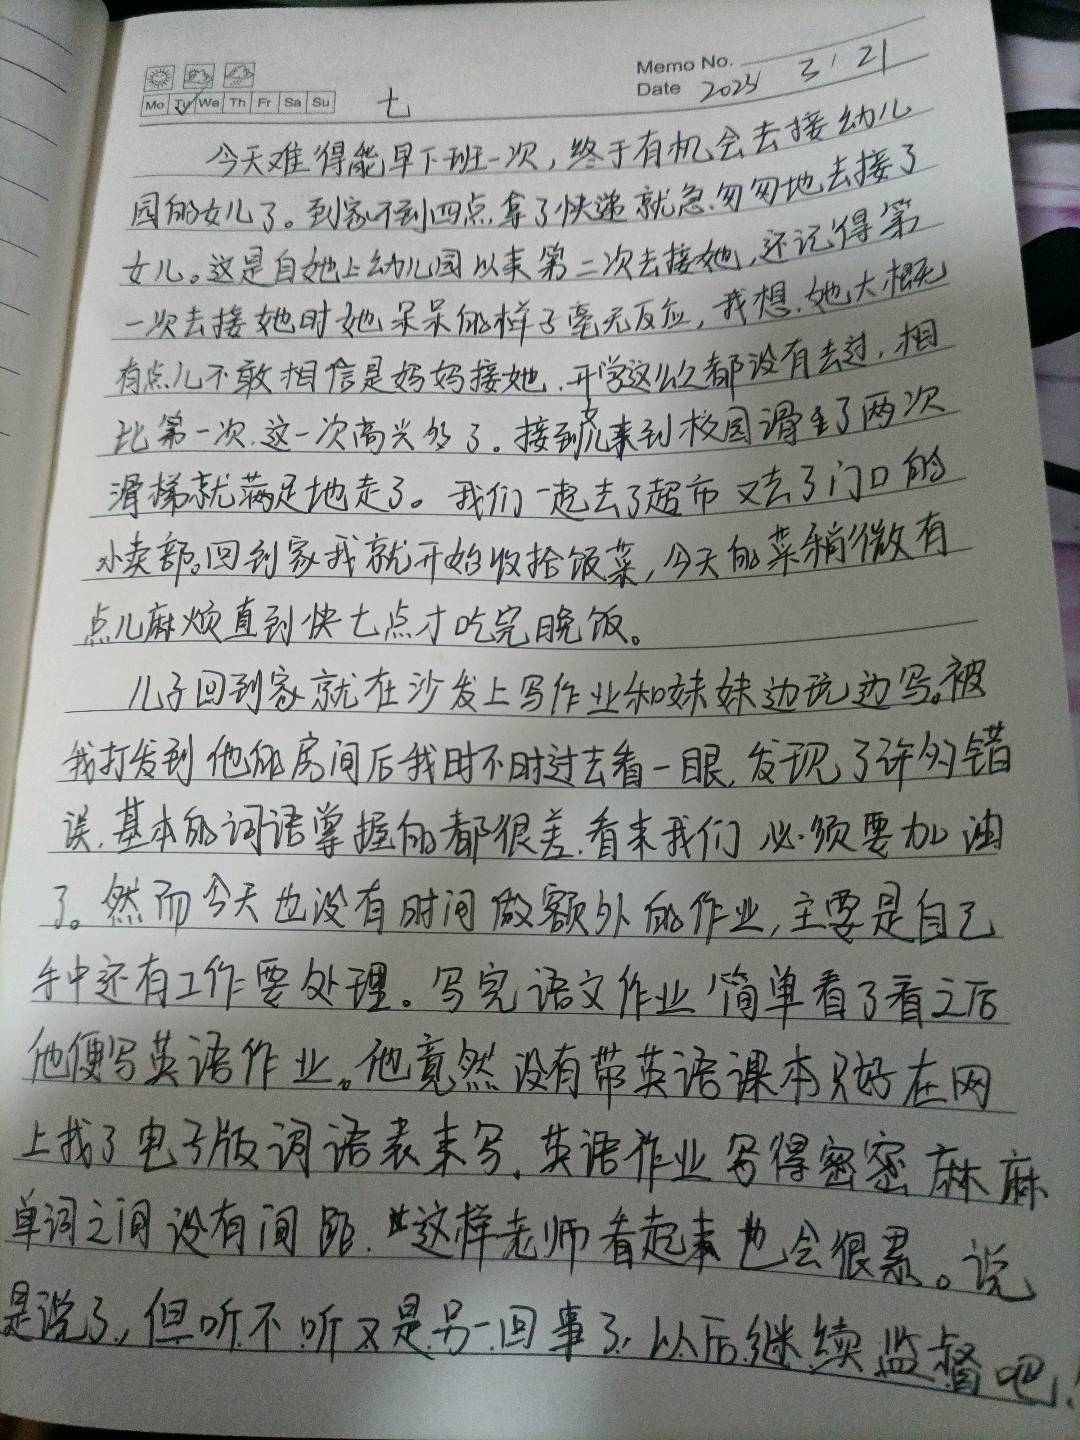 Memo No.
Mo Tu We Th Fr Sa Su
七
Date 2023 3/21
今天难得能早下班一次，终于有机会去接幼儿
园的女儿了。到家不到四点，拿了快递就急匆匆地去接了
女儿。这是自她上幼儿园以来第二次去接她，还记得第
一次去接她时她呆呆的样子毫无反应，我想，她大概
有点儿不敢相信是妈妈接她，开学这么久都没有去过，相
比第一次，这一次高兴多了。接到女儿来到校园滑了两次
滑梯就满足地走了。我们一起去了超市又去了门口的
小卖部。回到家我就开始收拾饭菜，今天的菜稍微有
点儿麻烦直到快七点才吃完晚饭。
儿子回到家就在沙发上写作业和妹妹边玩边写。被
我打发到他的房间后我时不时过去看一眼，发现了许多错
误，基本的词语掌握的都很差，看来我们必须要加油
了。然而今天也没有时间做额外的作业，主要是自己
手中还有工作要处理。写完语文作业简单看了看之后
他便写英语作业。他竟然没有带英语课本只好在网
上找了电子版词语表来写，英语作业写得密密麻麻
单词之间没有间距，这样老师看起来也会很累。说
是说了，但听不听又是另一回事了，以后继续监督吧！